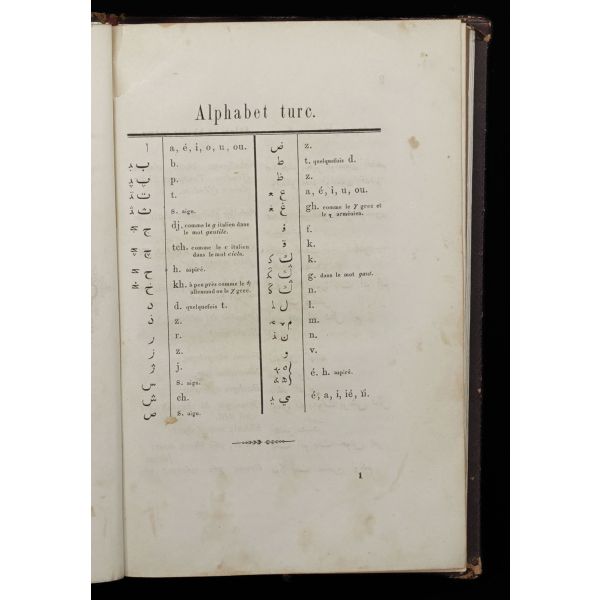 Alphabet turc.
ا a, é, i, o, u, ou.
ب b.
پ p.
ت t.
ث s. aigu.
ج dj. comme le g italien dans
le mot gentile.
چ tch. comme le c italien
dans le mot cielo.
ح h. aspiré.
خ kh. à peu près comme le
allemand ou le χ grec.
د d. quelquefois t.
ذ z.
ر r.
ز z.
ژ j.
س s. aigu.
ش ch.
ص s. aigu.
ض z.
ط t. quelquefois d.
ظ z.
ع a, é, i, u, ou.
غ gh. comme le γ grec et
le arménien.
ف f.
ق k.
ك k.
g. dans le mot gant.
n.
ل l.
م m.
ن n.
و v.
ه é. h. aspiré.
ي é, a, i, ié, ii.
1